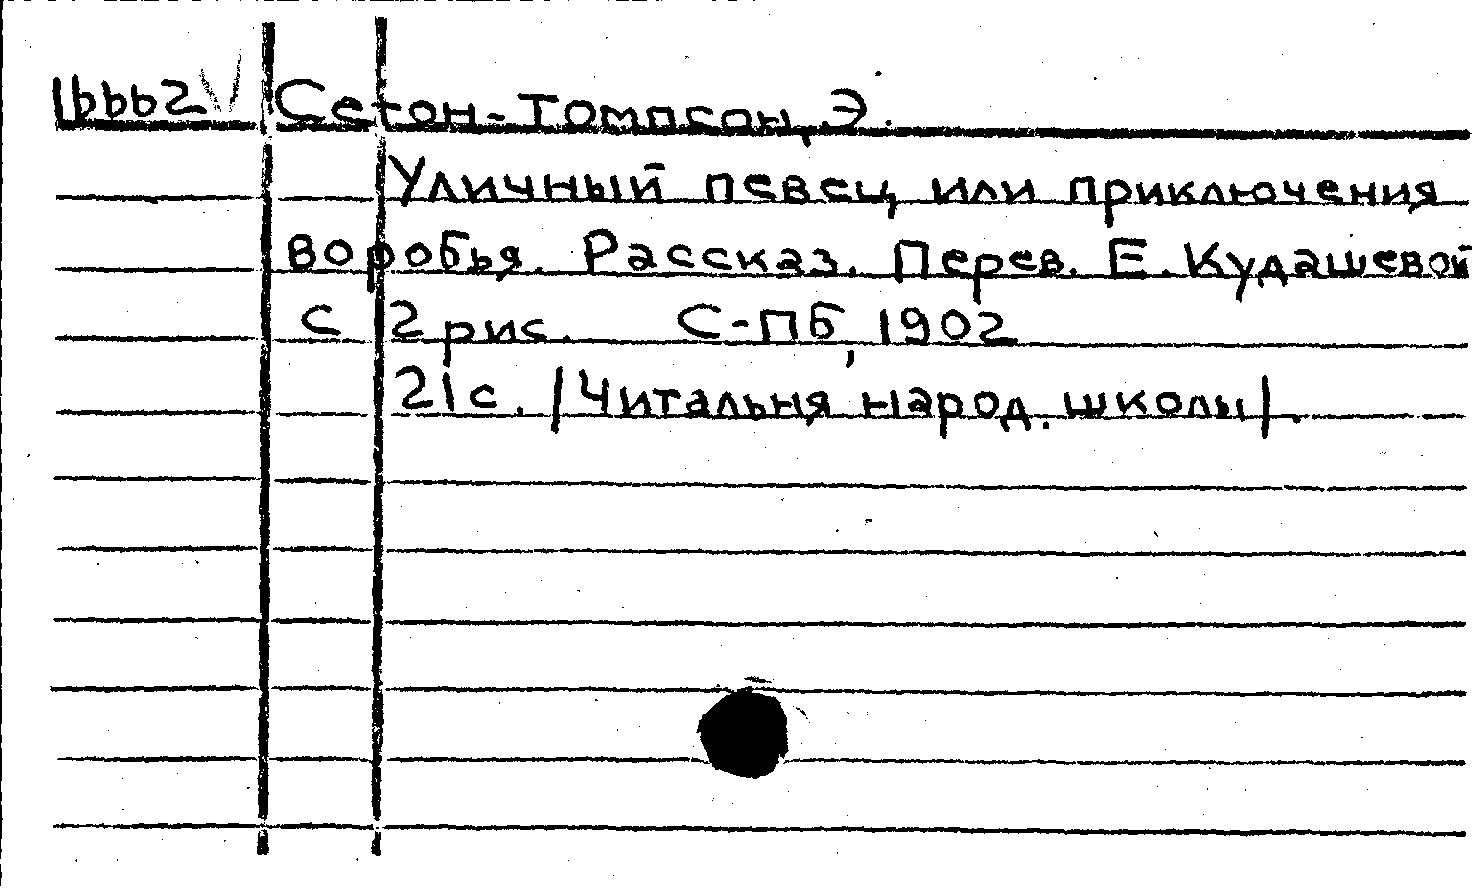 16662 Сетон-Томпсон, Э.
Уличный певец, или приключения
воробья. Рассказ. Перев. Е. Кудашевой
с 2 рис. С-ПБ, 1902
21с. /Читальня народ. школы/.